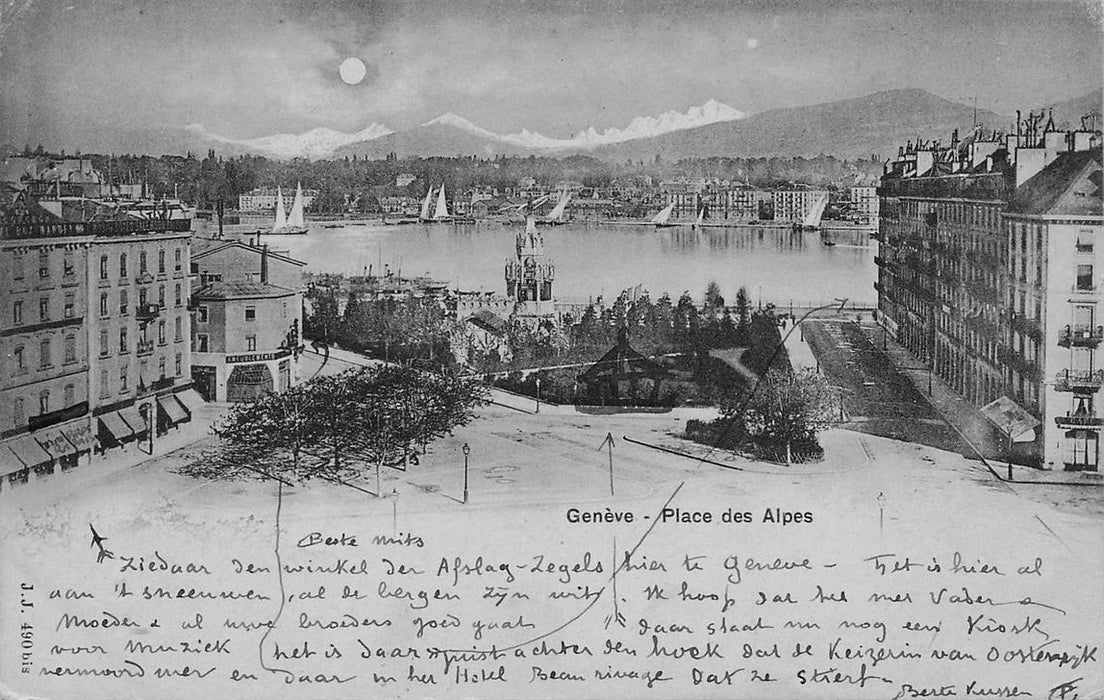 AMEUBLEMENTS
Genève - Place des Alpes
J.J. 490 bis
Beste mits
Ziedaar den winkel der Afslag-Zegels hier te Geneve - Het is hier al
aan 't sneeuwen, al de bergen zijn wit. Ik hoop dat het met Vader
Moeder & al uwe broeders goed gaat daar staat nu nog een Kiosk
voor Muziek het is daar juist achter den hoek dat de Keizerin van Oostenrijk
vermoord wer en daar in het Hotel Beau rivage dat ze stierf -
Berte